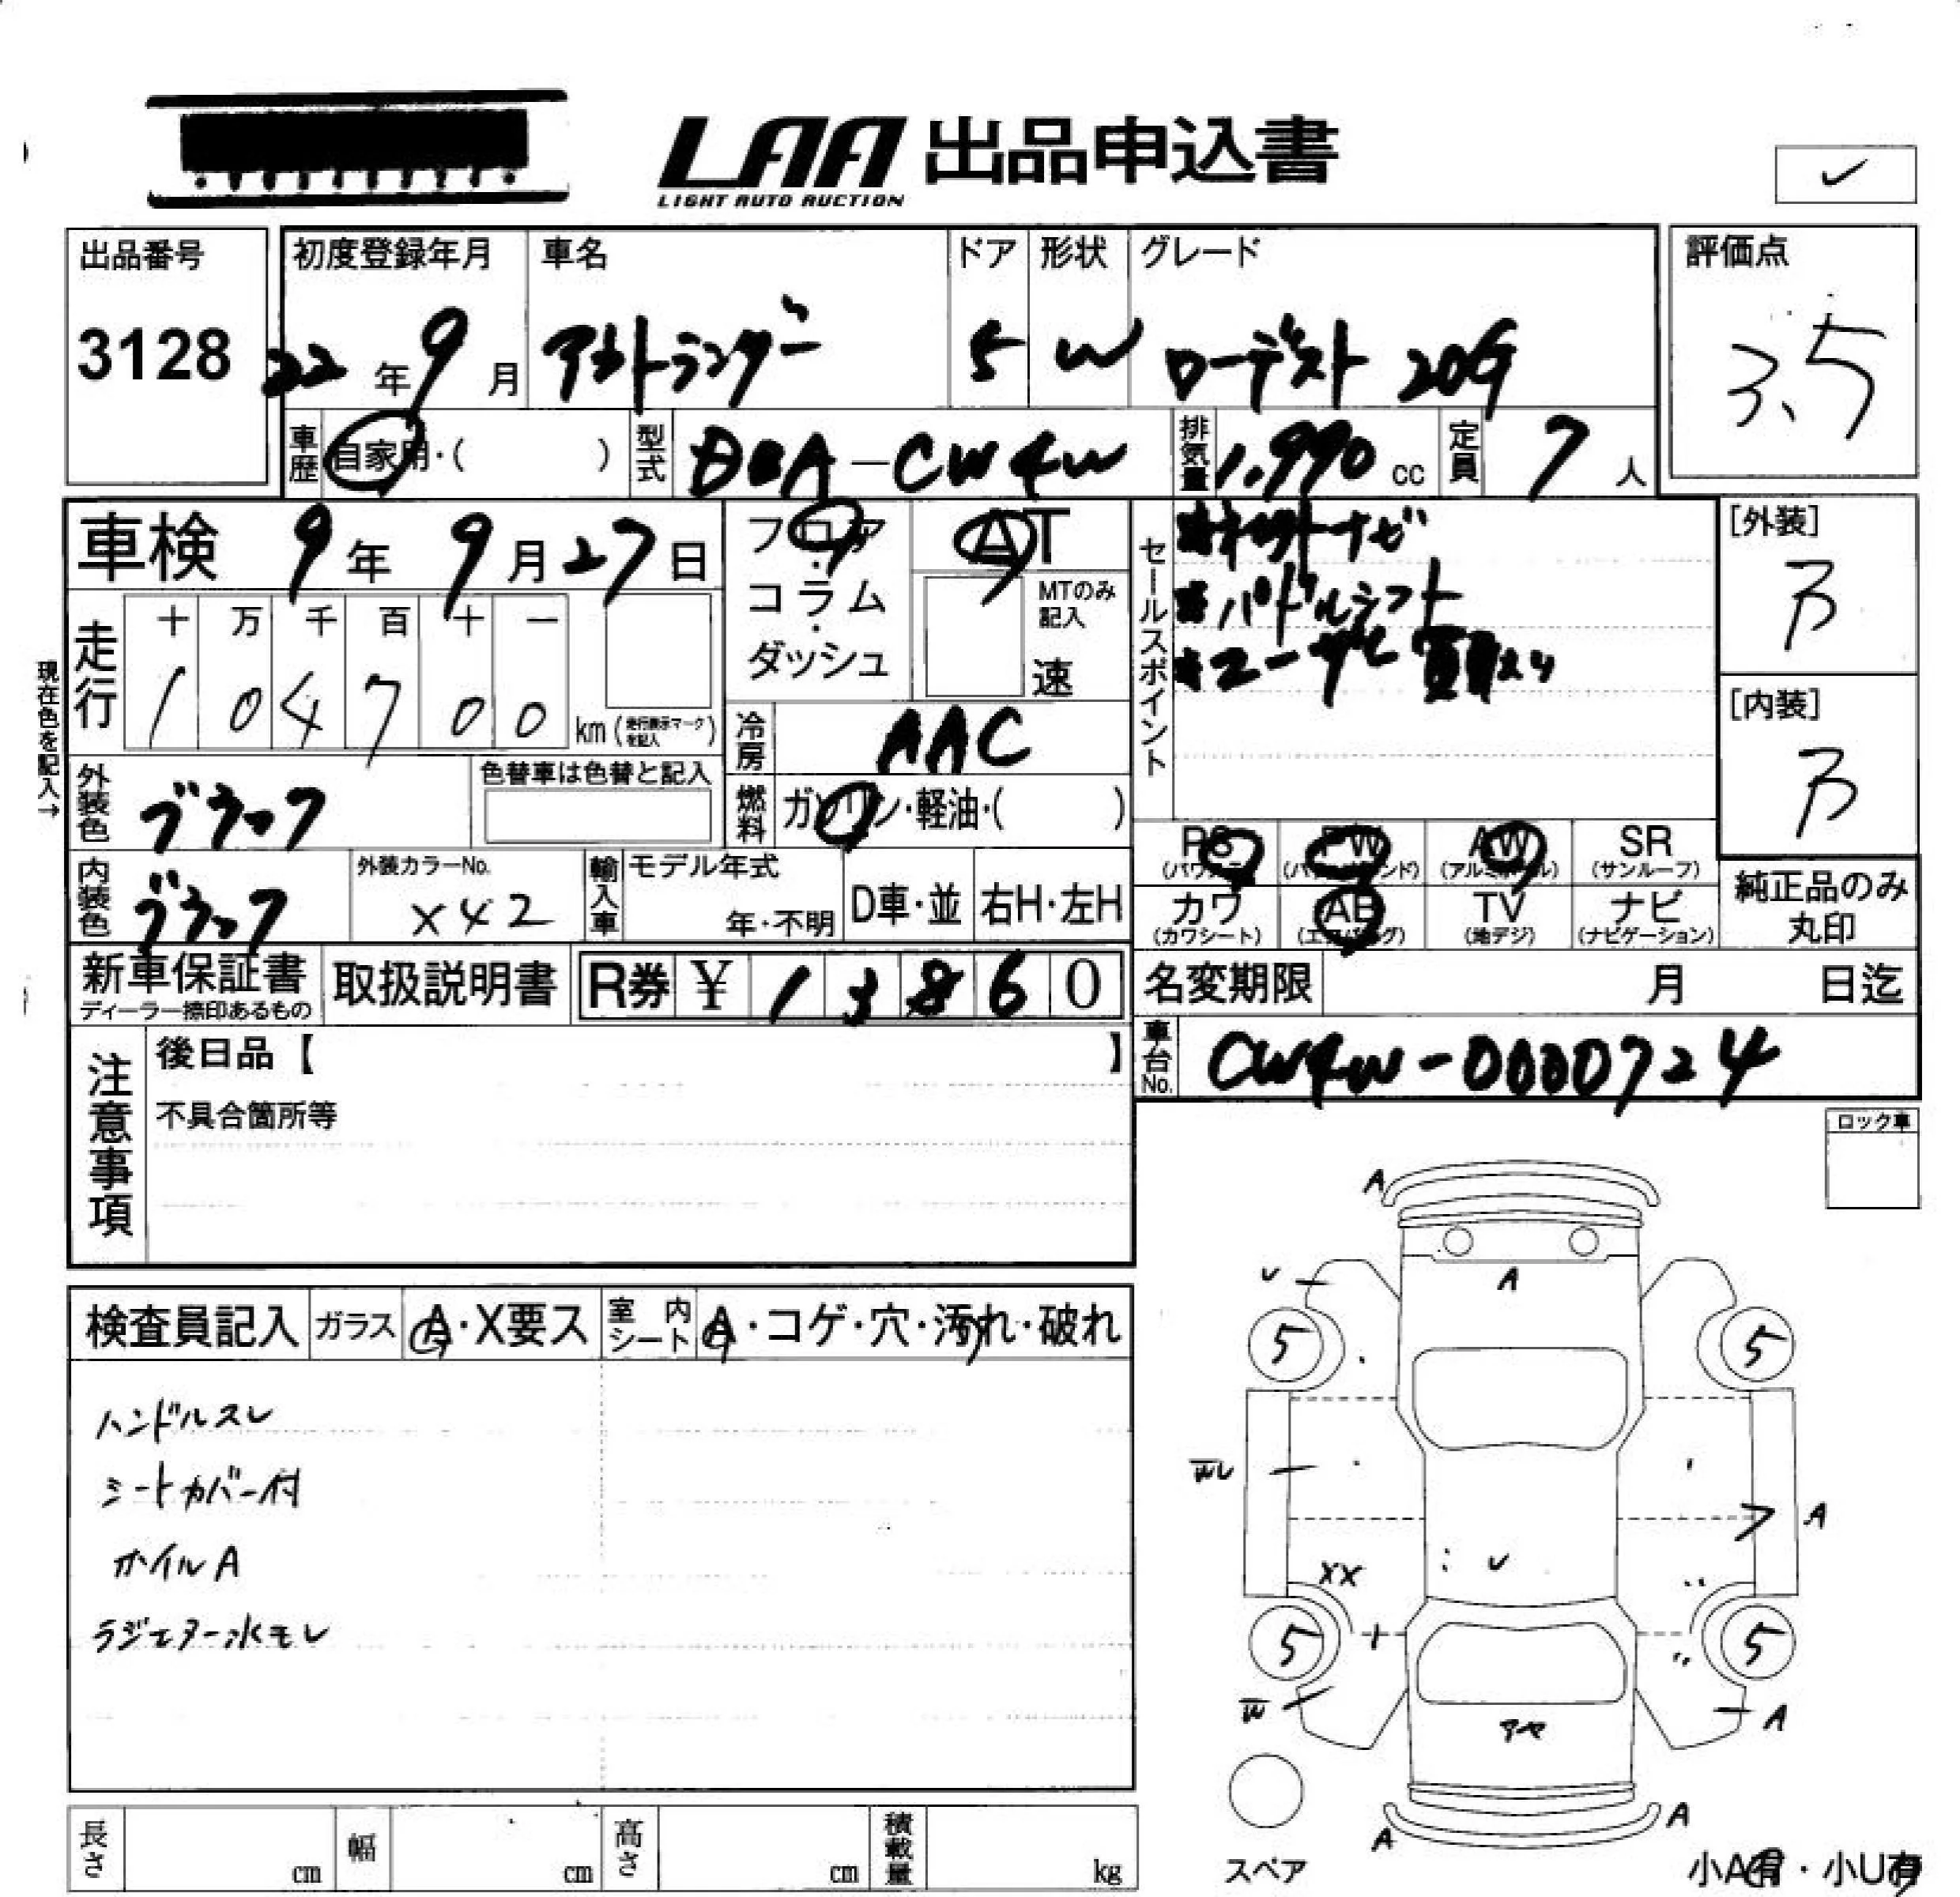 LAA 出品申込書
LIGHT AUTO AUCTION
✓
出品番号 初度登録年月 車名 ドア 形状 グレード 評価点
3128 22年 9月 アウトランダー 5 W ローデスト 20G 3.5
車歴 自家用・( ) 型式 DBA-CW4W 排気量 1,990 cc 定員 7 人
車検 9年 9月 27日 フロア・コラム・ダッシュ AT
MTのみ記入 速
セールスポイント
*パドルシフト
*ユーザー買取
[外装]
B
[内装]
B
現在色を記入→
走行 十 万 千 百 十 一
1 0 4 7 0 0 km (走行表示マークを記入)
冷房 AAC
外装色 ブラック 色替車は色替と記入
燃料 ガソリン・軽油・( )
PS (パワステ) PW (パワーウインド) AW (アルミホイール) SR (サンルーフ)
内装色 ブラック 外装カラーNo. X42 輸入車 モデル年式 年・不明 D車・並 右H・左H
カワ (カワシート) AB (エアバッグ) TV (地デジ) ナビ (ナビゲーション) 純正品のみ丸印
新車保証書 ディーラー捺印あるもの 取扱説明書 R券 ¥ 1 3 8 6 0
名変期限 月 日迄
車台No. CW4W-0000724
注意事項 後日品【 】
不具合箇所等
ロック車
検査員記入 ガラス A・X要ス 室内シート A・コゲ・穴・汚れ・破れ
ハンドルスレ
シートカバー付
ホイルA
ラジエター水モレ
A
A
U
5 5
WU
A
XX U
5 5
W
A
アヤ
A
A
スペア
小A有・小U有
長さ cm 幅 cm 高さ cm 積載量 kg